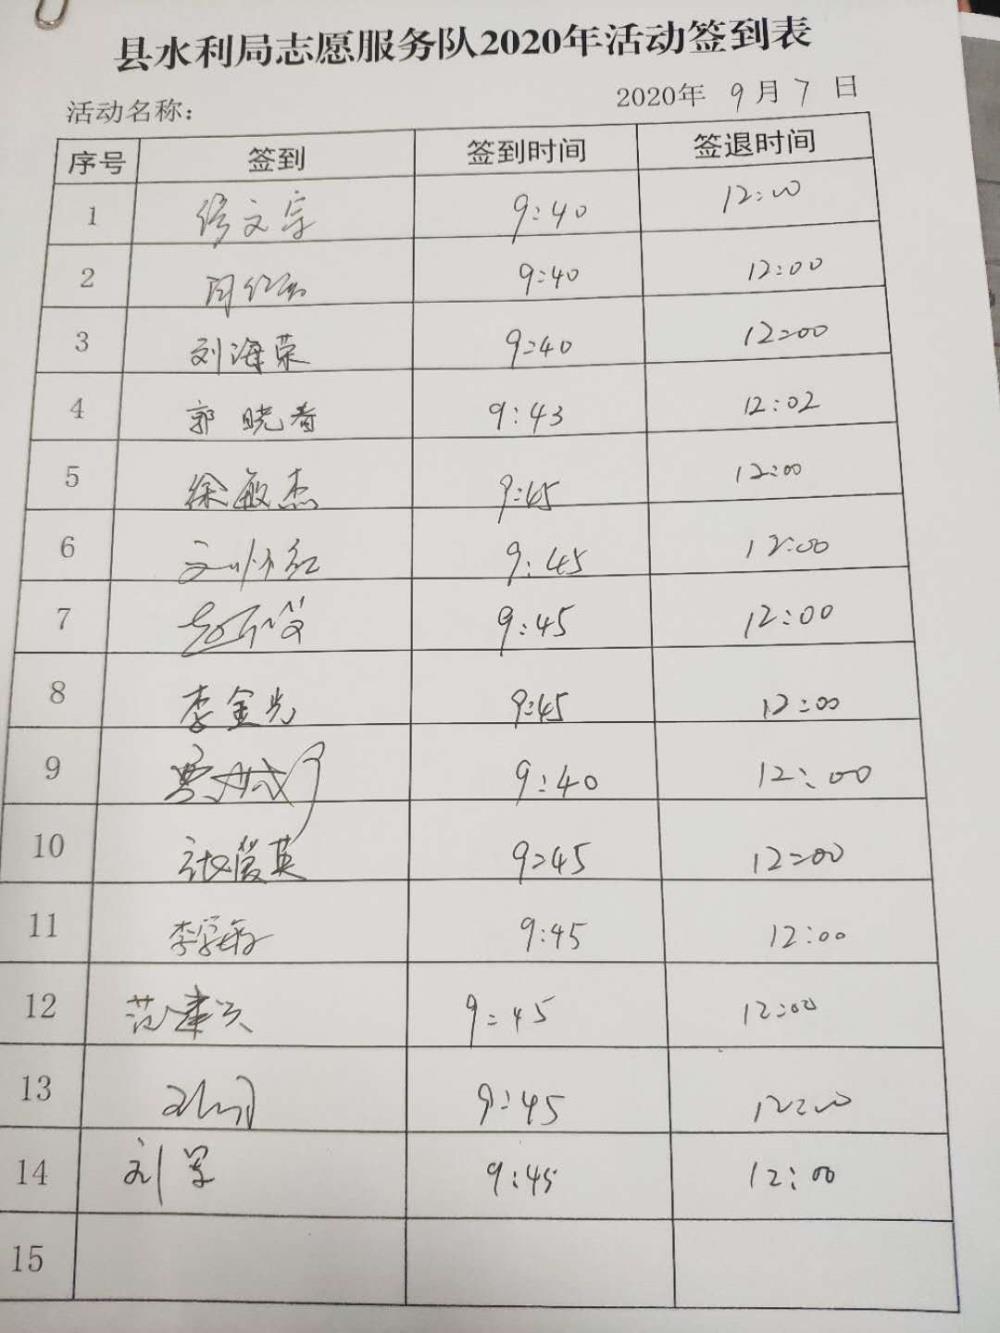 县水利局志愿服务队2020年活动签到表
活动名称:
2020年 9月 7 日
序号 签到 签到时间 签退时间
1 文宗 9:40 12:00
2 9:40 12:00
3 刘海荣 9:40 12:00
4 郭晓春 9:43 12:02
5 徐敏杰 9:45 12:00
6 9:45 12:00
7 9:45 12:00
8 李金光 9:45 12:00
9 9:40 12:00
10 英 9:45 12:00
11 李 9:45 12:00
12 范 9:45 12:00
13 9:45 12:00
14 刘军 9:45 12:00
15